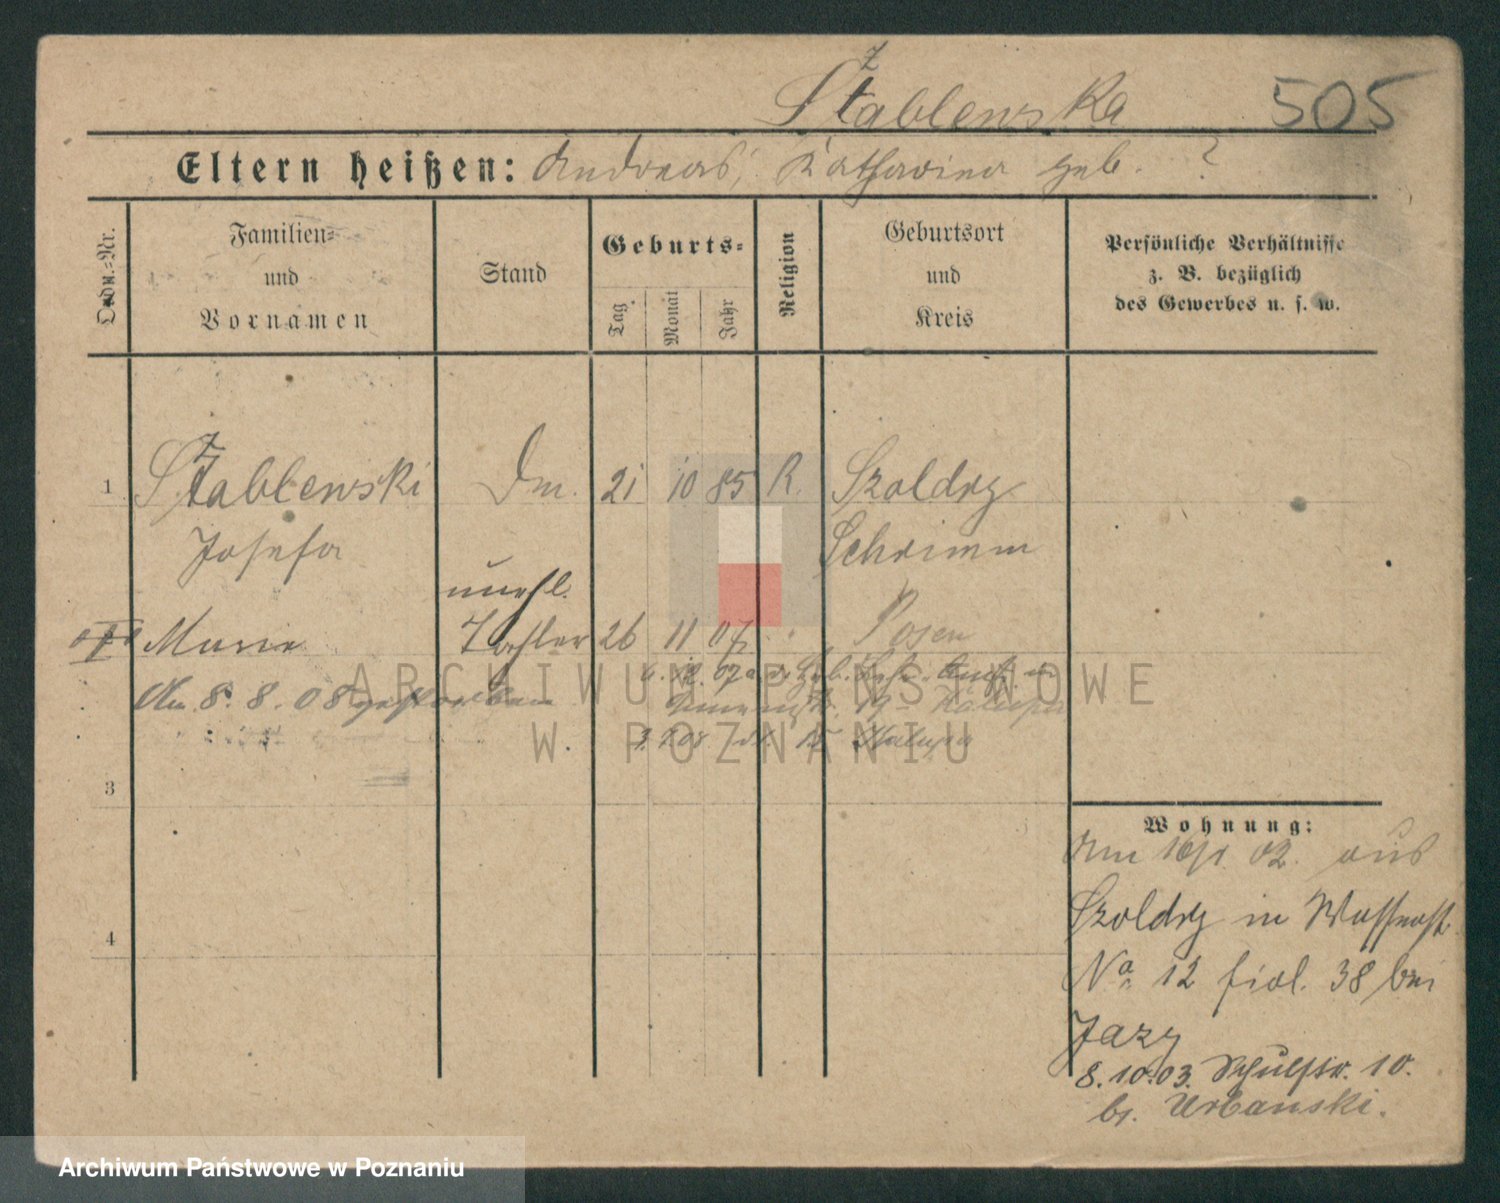 Stablewska 505
z
Eltern heißen: Andreas, Katharina geb. ?
Ordn.-Nr.
Familien- und Vornamen
Stand
Geburts-
Tag Monat Jahr
Religion
Geburtsort und Kreis
Persönliche Verhältnisse
z. B. bezüglich
des Gewerbes u. s. w.
z
1 Stablewski Dm. 21 10 85 R. Szoldry
Josefa Schrimm
unehl.
Marie Tochter 26 11 07 " Posen
Am 8. 8. 08 gestorben
3
4
Wohnung:
Am 02. aus
Szoldry in Wasserst.
No 12 fiol. 38 bei
Jazy
8.10.03. Schulstr. 10.
b. Urbanski.
ARCHIWUM PAŃSTWOWE
W POZNANIU
Archiwum Państwowe w Poznaniu